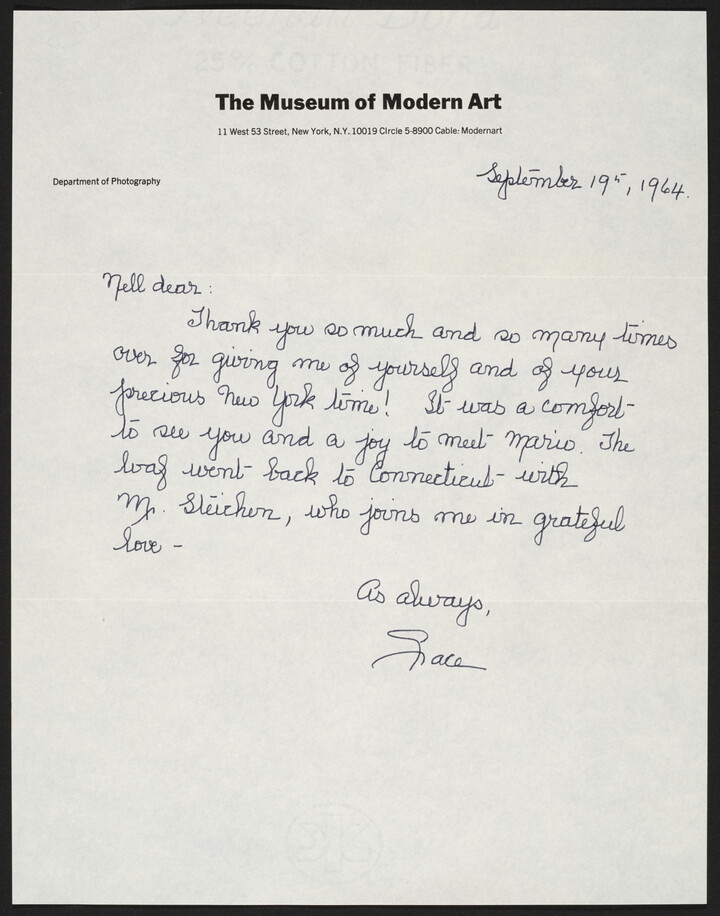 25% COTTON FIBER
The Museum of Modern Art
11 West 53 Street, New York, N.Y. 10019 CIrcle 5-8900 Cable: Modernart
Department of Photography
September 19th, 1964.
Nell dear:
Thank you so much and so many times
over for giving me of yourself and of your
precious New York time! It was a comfort
to see you and a joy to meet Mario. The
loaf went back to Connecticut with
Mr. Steichen, who joins me in grateful
love -
As always,
Grace